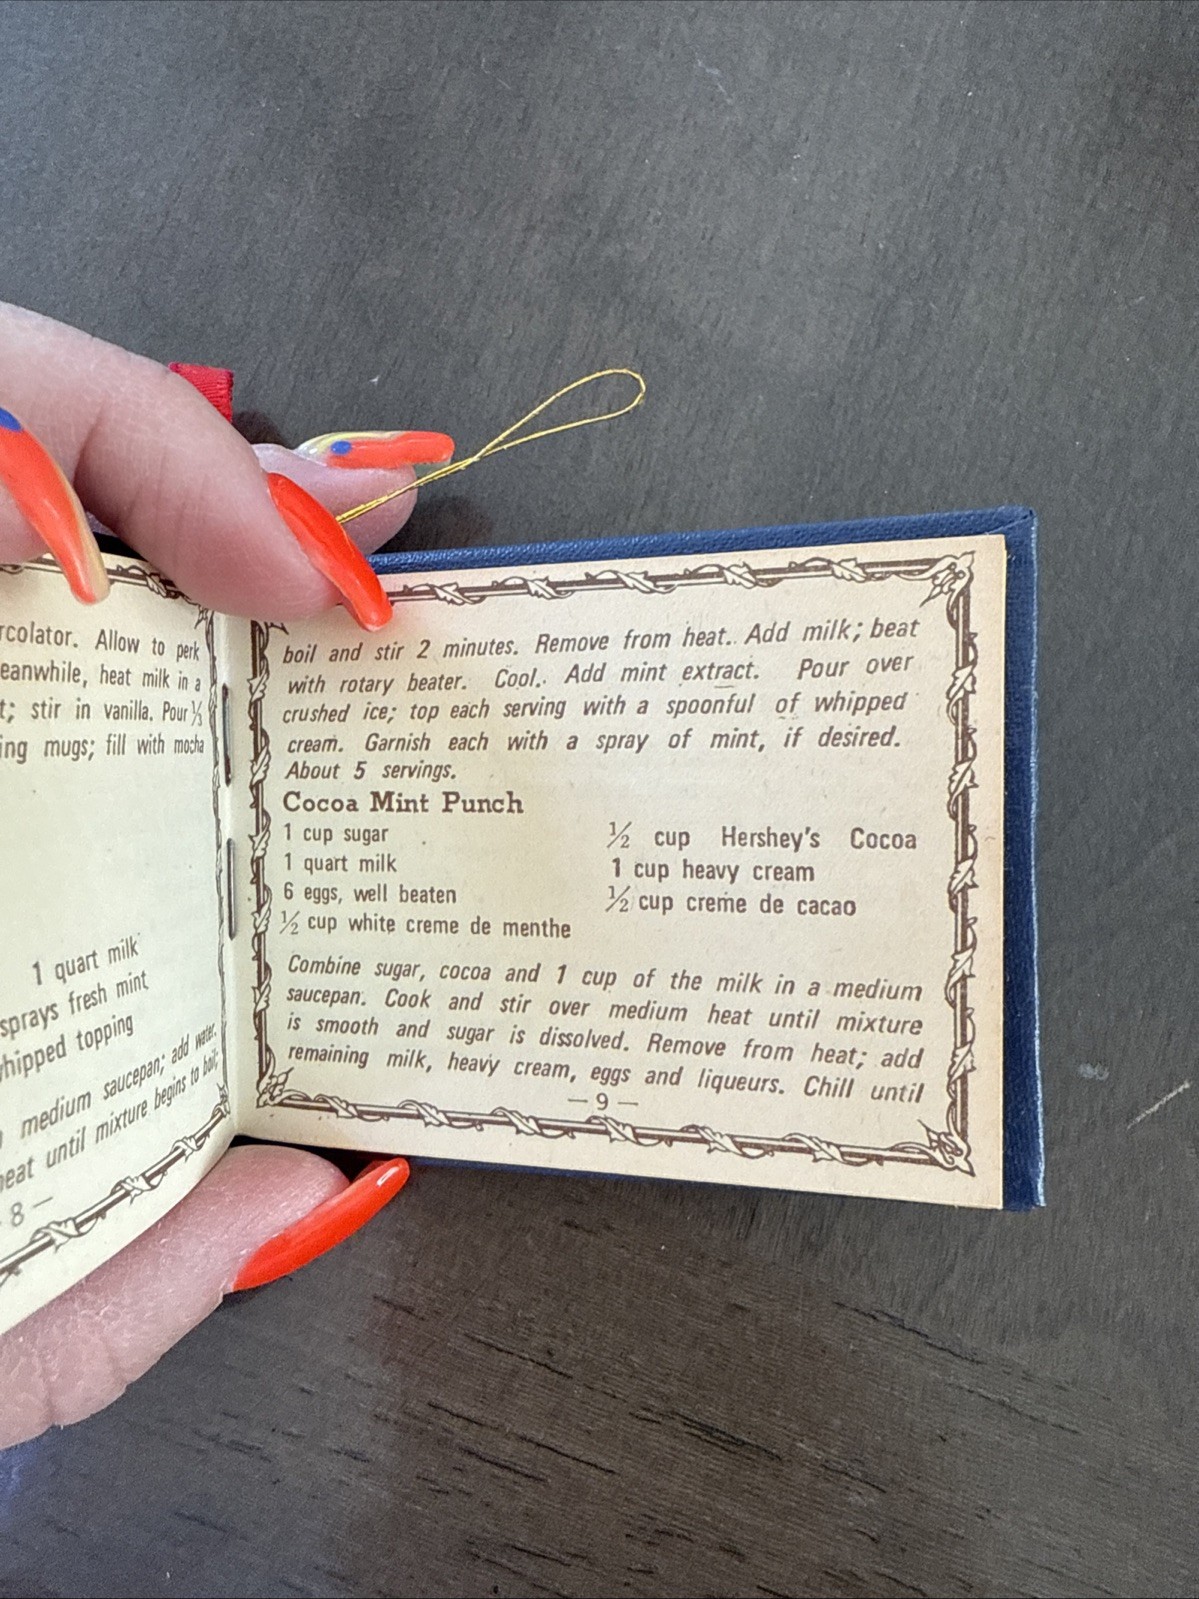 rcolator. Allow to perk
eanwhile, heat milk in a
t; stir in vanilla. Pour ⅓
ing mugs; fill with mocha
1 quart milk
sprays fresh mint
whipped topping
medium saucepan; add water.
heat until mixture begins to boil;
8 —
boil and stir 2 minutes. Remove from heat. Add milk; beat
with rotary beater. Cool. Add mint extract. Pour over
crushed ice; top each serving with a spoonful of whipped
cream. Garnish each with a spray of mint, if desired.
About 5 servings.
Cocoa Mint Punch
1 cup sugar
1 quart milk
6 eggs, well beaten
½ cup white creme de menthe
½ cup Hershey's Cocoa
1 cup heavy cream
½ cup creme de cacao
Combine sugar, cocoa and 1 cup of the milk in a medium
saucepan. Cook and stir over medium heat until mixture
is smooth and sugar is dissolved. Remove from heat; add
remaining milk, heavy cream, eggs and liqueurs. Chill until
— 9 —